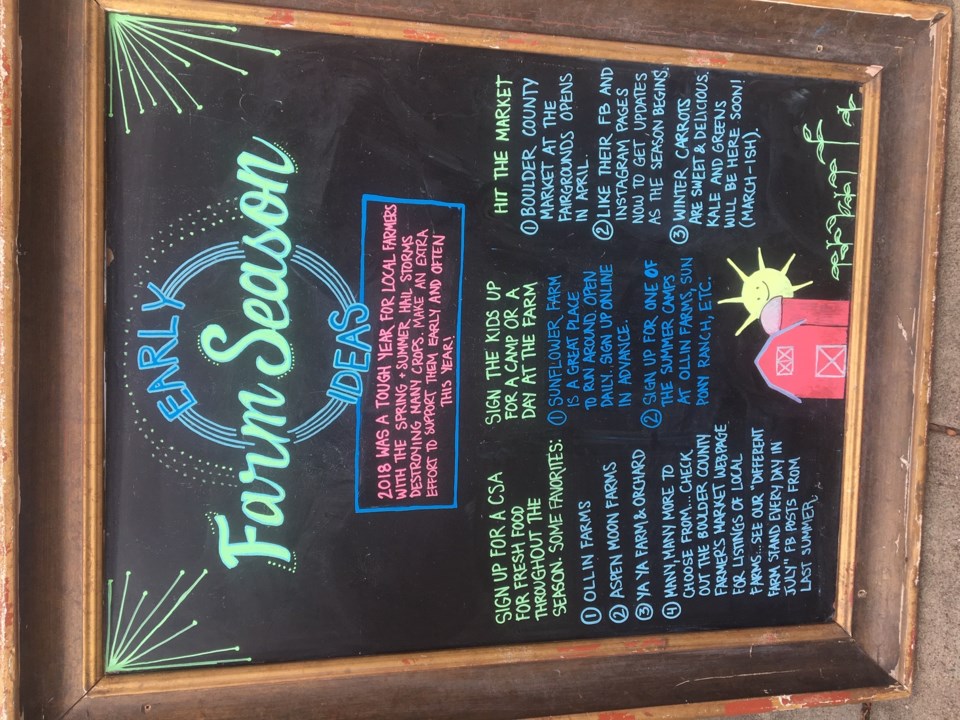 EARLY
Farm Season
IDEAS
2018 WAS A TOUGH YEAR FOR LOCAL FARMERS
WITH THE SPRING + SUMMER HAIL STORMS
DESTROYING MANY CROPS. MAKE AN EXTRA
EFFORT TO SUPPORT THEM EARLY AND OFTEN
THIS YEAR!
SIGN UP FOR A CSA
FOR FRESH FOOD
THROUGHOUT THE
SEASON. SOME FAVORITES:
① OLLIN FARMS
② ASPEN MOON FARMS
③ YA YA FARM & ORCHARD
④ MANY, MANY MORE TO
CHOOSE FROM... CHECK
OUT THE BOULDER COUNTY
FARMERS MARKET WEBPAGE
FOR LISTINGS OF LOCAL
FARMS... SEE OUR "DIFFERENT
FARM STAND EVERY DAY IN
JULY" FB POSTS FROM
LAST SUMMER.
SIGN THE KIDS UP
FOR A CAMP OR A
DAY AT THE FARM
① SUNFLOWER FARM
IS A GREAT PLACE
TO RUN AROUND. OPEN
DAILY. SIGN UP ONLINE
IN ADVANCE.
② SIGN UP FOR ONE OF
THE SUMMER CAMPS
AT OLLIN FARMS, SUN
PONY RANCH, ETC.
HIT THE MARKET
① BOULDER COUNTY
MARKET AT THE
FAIRGROUNDS OPENS
IN APRIL.
② LIKE THEIR FB AND
INSTAGRAM PAGES
NOW TO GET UPDATES
AS THE SEASON BEGINS.
③ WINTER CARROTS
ARE SWEET & DELICIOUS.
KALE AND GREENS
WILL BE HERE SOON!
(MARCH-ISH).